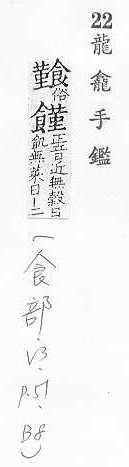 22 龍龕手鑑
俗饉正音近無穀曰
飢無菜曰丨二
(食部.V3.P.51.B8)